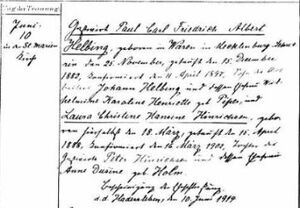 Tag der Trauung
Juni
10
in der St. Marien
Kirche
Paul Carl Friedrich Albert
Helbing, geboren in Waren in Mecklenburg
den 25. November, getauft den 15. Dezember
1882, konfirmiert den 11. April 1897. Sohn des
Johann Helbing und dessen Ehefrau
Karoline Henriette geb. und
Laura Christine Hansine Hinrichsen, geb.
den 18. März, getauft den 15. April
1886. Konfirmiert den 16. März 1902, Tochter des
Peter Hinrichsen und dessen Ehefrau
Anne geb. Holm.
d.d. Hadersleben, den 10. Juni 1919